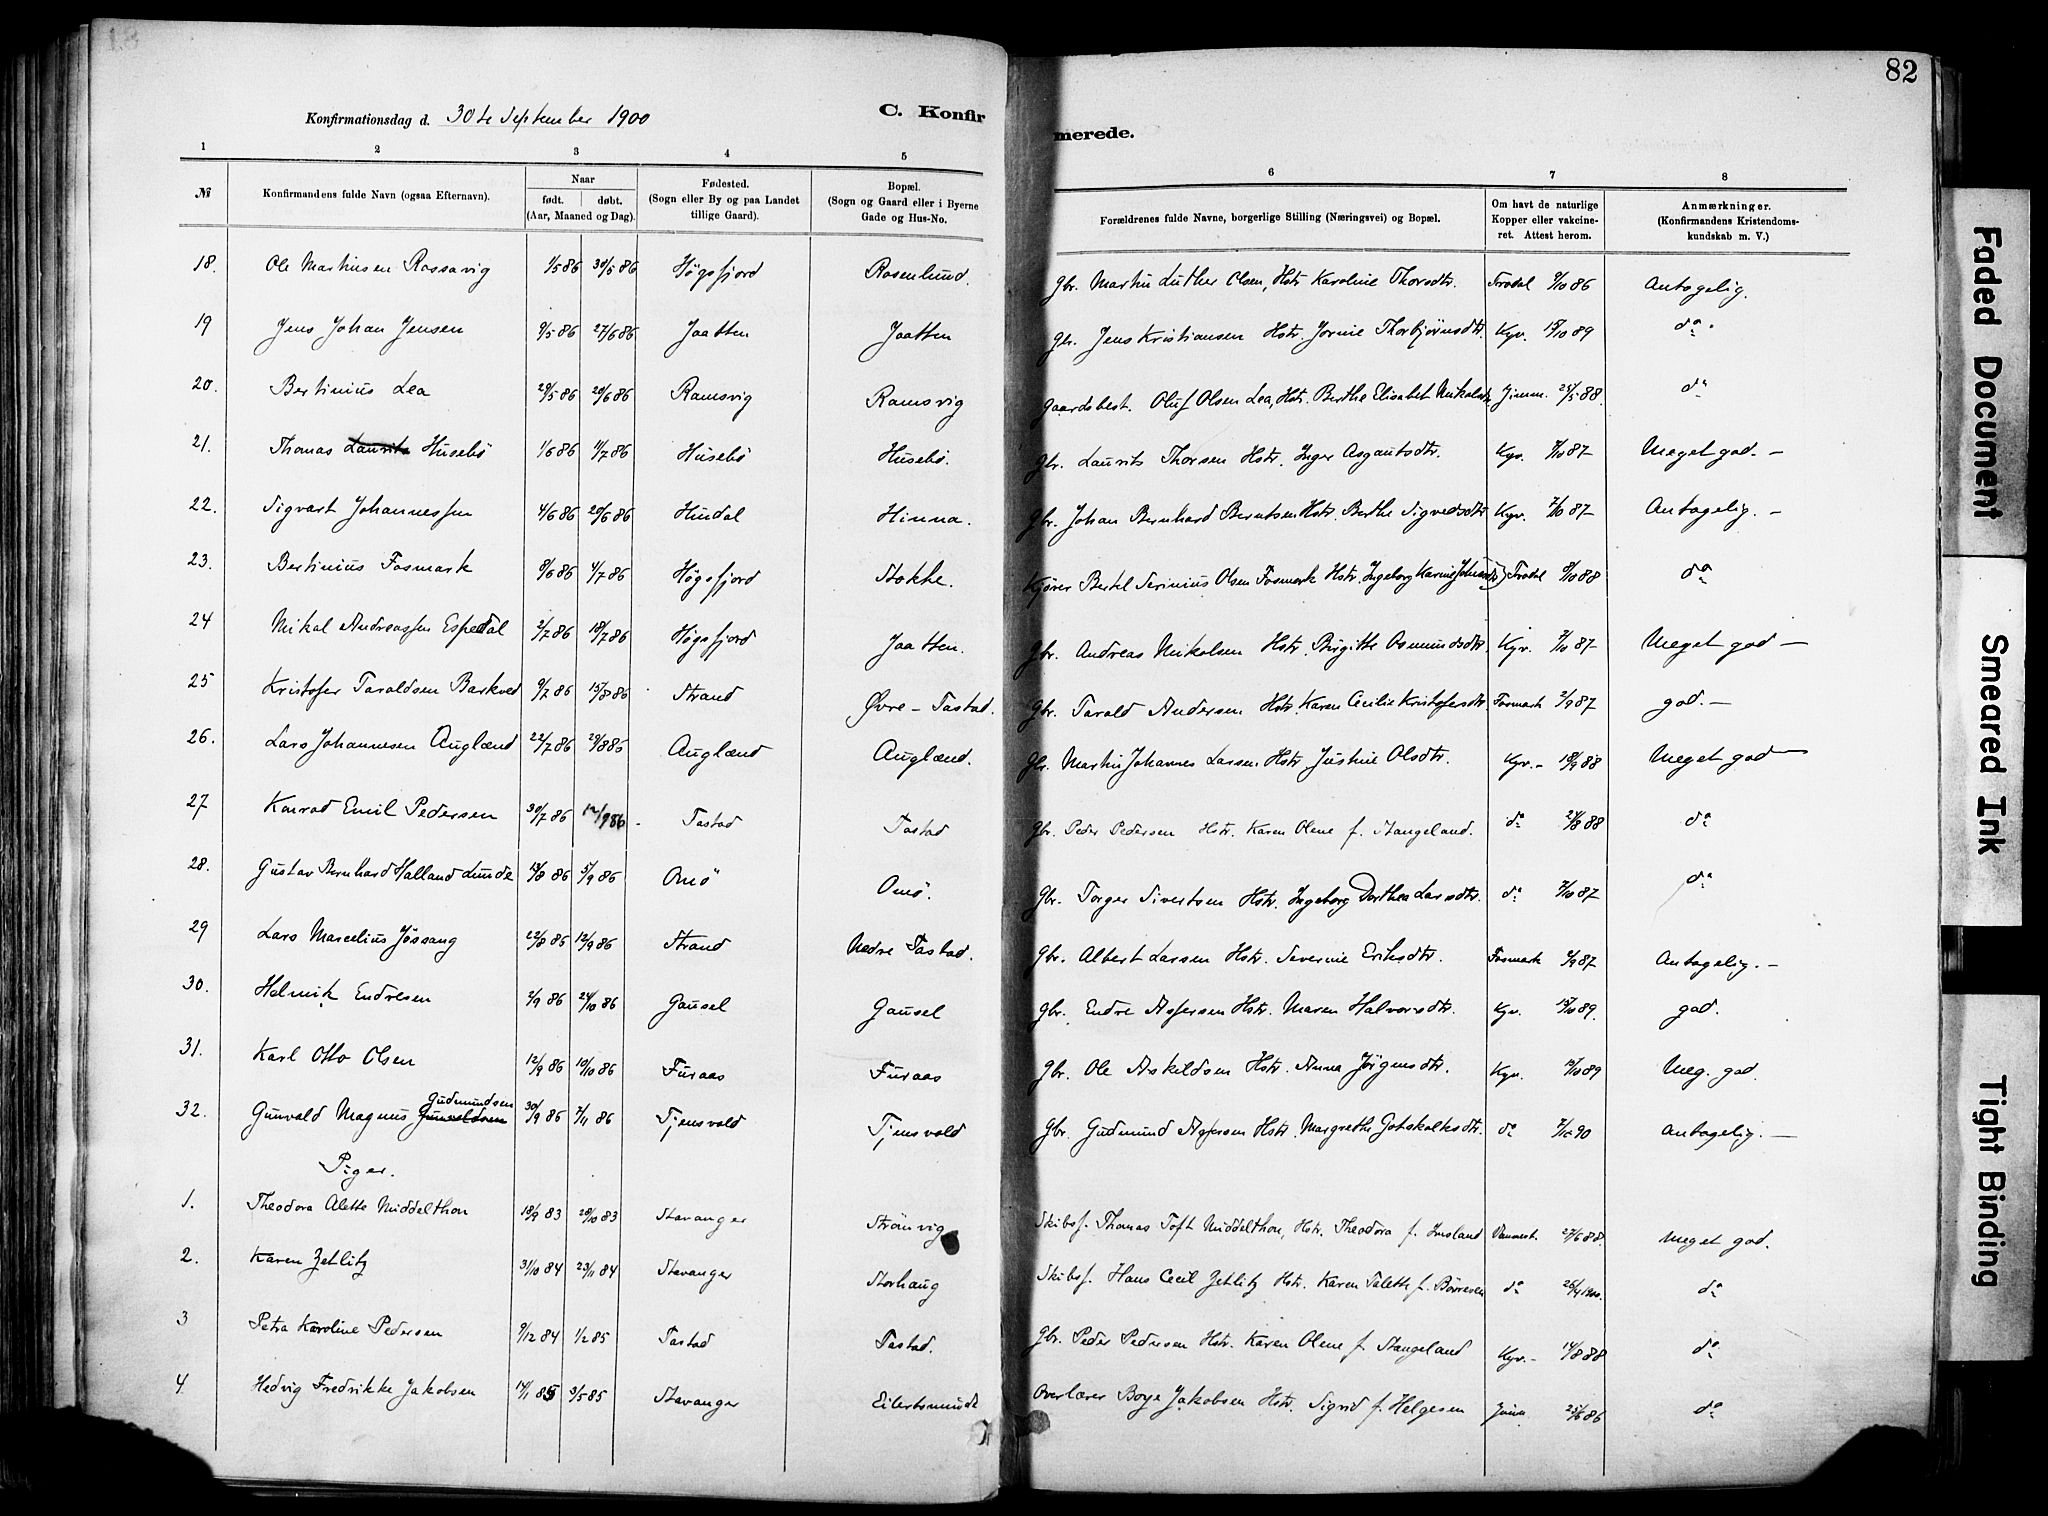 82
Konfirmationsdag d. 30te September 1900
C. Konfirmerede.
1 2 3 4 5 6 7 8
№ Konfirmandens fulde Navn (ogsaa Efternavn). Naar født. døbt. (Aar, Maaned og Dag). Fødested. (Sogn eller By og paa Landet tillige Gaard). Bopæl. (Sogn og Gaard eller i Byerne Gade og Hus-No. Forældrenes fulde Navne, borgerlige Stilling (Næringsvei) og Bopæl. Om havt de naturlige Kopper eller vakcineret. Attest herom. Anmærkninger. (Konfirmandens Kristendomskundskab m. V.)
18. Ole Martinsen Rossavig 1/5 86 30/5 86 Høgsfjord Rosenlund. Gbr. Martin Luther Olsen, Hstr. Karoline Thorsdtr. Frodal 9/10 86 Antagelig.
19 Jens Johan Jensen 9/5 86 27/6 86 Jaatten Jaatten Gbr. Jens Kristiansen Hstr. Jornie Thorbjørnsdtr. Kyv. 15/10 89 do.
20. Bertinius Lea 29/5 86 20/6 86 Ramsvig Ramsvig Gaardsbest. Oluf Olsen Lea, Hstr. Berthe Elisabet Nikolsdtr 25/5 88. do
21. Thomas Laurits Husebø 1/6 86 11/7 86 Husebø Husebø. Gbr. Laurits Thorsen Hstr. Inger Asgautsdtr. Kyv. 7/10 87 Meget god. –
22. Sigvart Johannessen 4/6 86 20/6 86 Hindal Hinna. Gbr. Johan Bernhard Berntsen Hstr. Berthe Sigvedsdtr Kyv. 7/10 87 Antagelig. –
23. Bertinius Fosmark 8/6 86 4/7 86 Høgsfjord Stokke. Kjører Bertel Serinius Olsen Fosmark Hstr. Ingeborg Karine Frodal 9/10 88 do
24 Mikal Andreassen Espedal 2/7 86 18/7 86 Høgsfjord Jaatten. Gbr. Andreas Mikalsen Hstr. Birgitte Osmundsdtr Kyv. 7/10 87 Meget god –
25 Kristofer Taraldsen Barkved 9/7 86 15/8 86 Strand Øvre – Tastad. Gbr. Tarald Andersen Hstr. Karen Cecilie Kristofersdtr. Fosmark 2/9 87 god. –
26. Lars Johannesen Auglænd 22/7 86 29/8 86 Auglænd Auglænd. Gbr. Martin Johannes Larsen Hstr. Justine Olsdtr. Kyv. – 18/9 88 Meget god –
27 Konrad Emil Pedersen 30/7 86 12/9 86 Tastad Tastad Gbr. Peder Pedersen Hstr. Karen Olene f. Stangeland. do 24/8 88 do
28. Gustav Bernhard Halland Lunde 13/8 86 5/9 86 Omø Omø. Gbr. Torger Sivertsen Hstr. Ingeborg Dorthea Larsdtr. do 7/10 87 do
29 Lars Marcelius Jøssang 22/8 86 12/9 86 Strand Nedre Tastad. Gbr. Albert Larsen Hstr. Severine Eriksdtr. Fosmark 2/9 87 Antagelig. –
30. Helmik Endresen 2/9 86 24/10 86 Gausel Gausel Gbr. Endre Assersen Hstr. Maren Halvorsdtr. Kyv. 15/10 89. god.
31. Karl Otto Olsen 12/9 86 10/10 86 Furaas Furaas Gbr. Ole Askildsen Hstr. Anna Jørgensdtr. Kyv. 15/10 89 Meg. god.
32. Gunvald Magnus Gunvaldsen Gudmundsen 30/9 86 7/11 86 Tjensvold Tjensvold Gbr. Gudmund Assersen Hstr. Margrethe Gotskalksdtr. do 7/10 90 Antagelig. –
Piger.
1. Theodora Alette Middelthon 18/9 83 28/10 83 Stavanger Strömvig Skibsf. Thomas Toft Middelthon, Hstr. Theodora f. Imsland 27/6 88. Meget god.
2. Karen Zetlitz 31/10 84 23/11 84 Stavanger Storhaug Skibsf. Hans Cecil Zetlitz Hstr. Karen Talette f. Börresen do 26/4 1900. do
3 Petra Karoline Pedersen 9/12 84 1/2 85 Tastad Tastad. Gbr. Peder Pedersen Hstr. Karen Olene f. Stangeland Kyv. – 14/8 88 do
4. Hedvig Fredrikke Jakobsen 14/1 85 3/5 85 Stavanger Eilertsminde Overlærer Boye Jakobsen Hstr. Sigrid f. Helgesen 25/6 86 do
Faded Document
Smeared Ink
Tight Binding